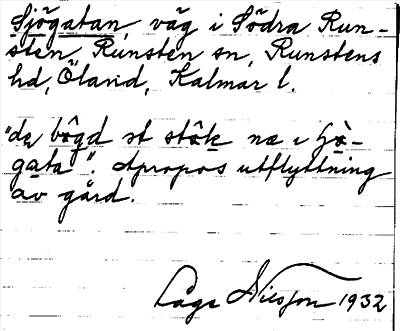 Sjögatan, väg i Södra Run-
sten, Runsten sn, Runstens
hd, Öland, Kalmar l.
"de bôgd st stôk ne i
gata". Apropos utflyttning
av gård.
Åge Nilsson 1932